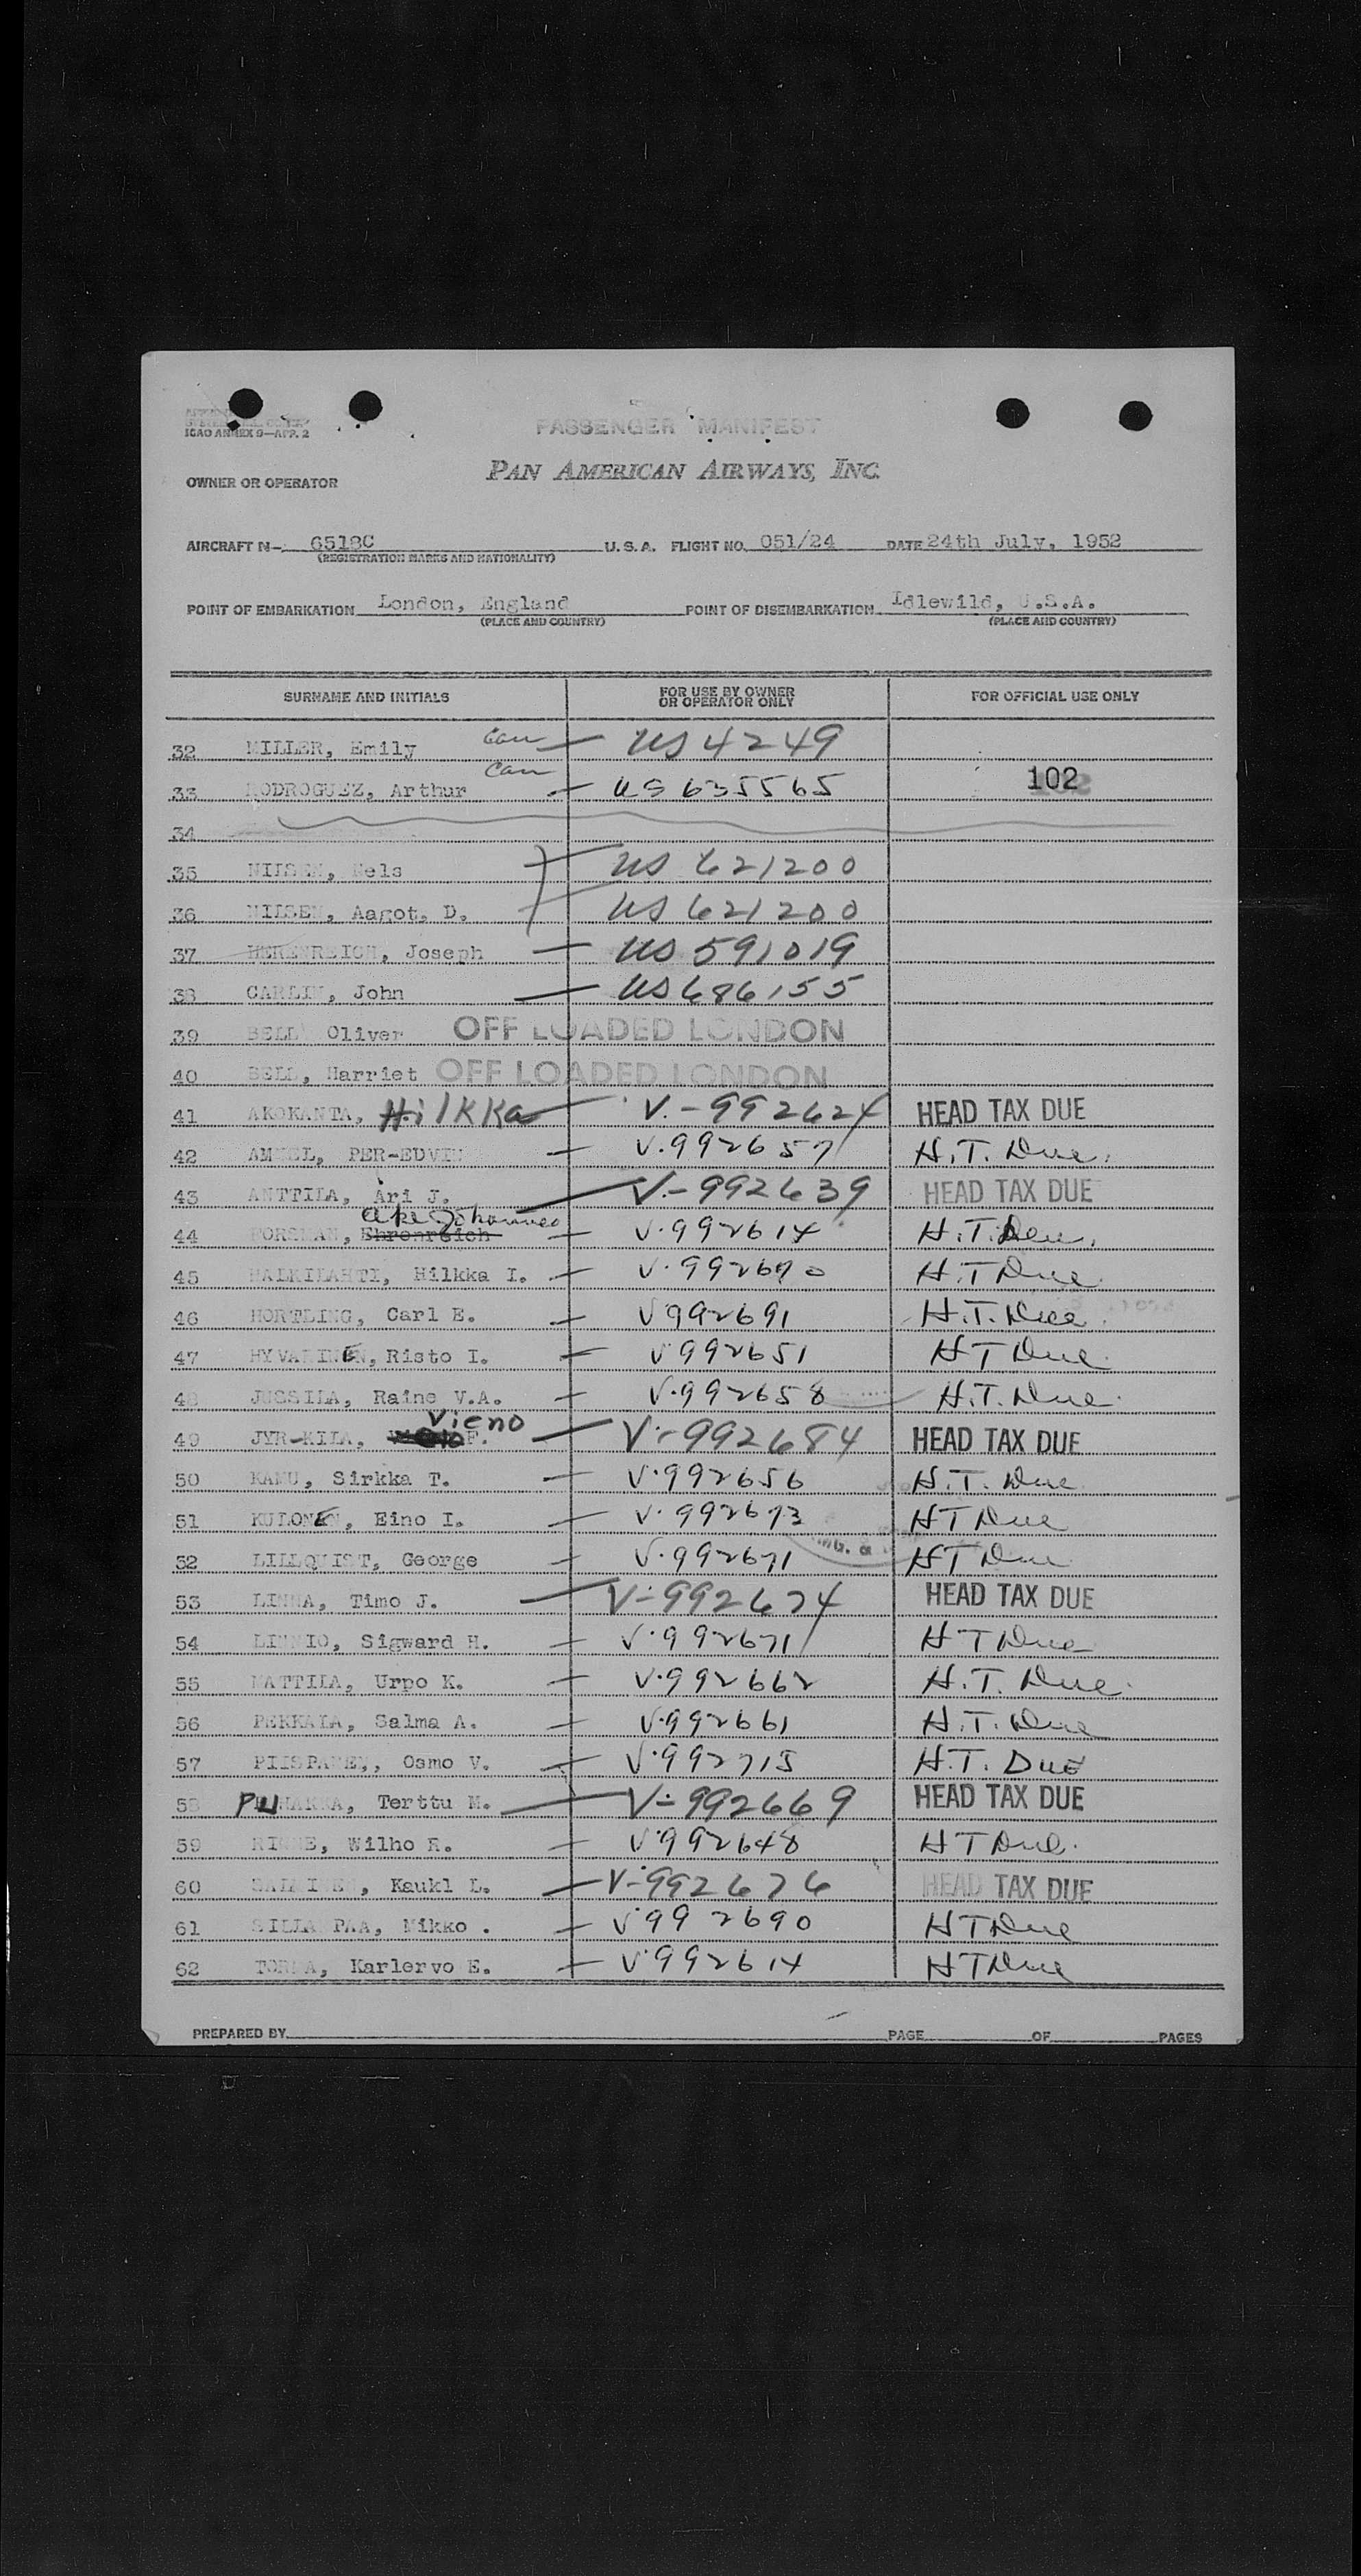 ICAO ANNEX 9—APP. 2
PASSENGER MANIFEST
PAN AMERICAN AIRWAYS, INC.
OWNER OR OPERATOR
AIRCRAFT N- 6518C U.S.A. FLIGHT NO. 051/24 DATE 24th July, 1952
(REGISTRATION MARKS AND NATIONALITY)
POINT OF EMBARKATION London, England POINT OF DISEMBARKATION Idlewild, U.S.A.
(PLACE AND COUNTRY) (PLACE AND COUNTRY)
SURNAME AND INITIALS FOR USE BY OWNER OR OPERATOR ONLY FOR OFFICIAL USE ONLY
32 MILLER, Emily Can — US 4249
33 RODROGUEZ, Arthur Can — US 635565 102
34
35 NILSEN, Nels US 621200
36 NILSEN, Aagot, D. US 621200
37 HERENREICH, Joseph — US 591019
38 CARLIN, John — US 686155
39 BELL Oliver OFF LOADED LONDON
40 BELL, Harriet OFF LOADED LONDON
41 AKOKANTA, Hilkka — V.-992624 HEAD TAX DUE
42 AMMEL, PER-EDVIN — V.992657 H.T. Due.
43 ANTTILA, Ari J. — V.-992639 HEAD TAX DUE
Ake Johannes
44 FORSMAN, Ehrenreich — V.992614 H.T. Due.
45 HALKILAHTI, Hilkka I. — V.992670 H.T Due.
46 HORTLING, Carl E. — V992691 H.T. Due.
47 HYVARINEN, Risto I. — V992651 HT Due.
48 JUSSILA, Raine V.A. — V.992658 H.T. Due.
Vieno
49 JYR-KILA, F. — V-992684 HEAD TAX DUE
50 KAMU, Sirkka T. — V.992656 H.T. Due
51 KULONEN, Eino I. — V.992673 HT Due
52 LILLQUIST, George — V.992671 HT Due
53 LINNA, Timo J. — V-992674 HEAD TAX DUE
54 LINNIO, Sigward H. — V.992671 HT Due
55 MATTILA, Urpo K. — V.992662 H.T. Due.
56 PEKKALA, Salma A. — V.992661 H.T. Due
57 PIISPANEN,, Osmo V. — V.992715 H.T. DUE
58 PUHAKKA, Terttu M. — V-992669 HEAD TAX DUE
59 RINNE, Wilho R. — V992648 HT Due.
60 SAIMINEN, Kaukl L. — V-992676 HEAD TAX DUE
61 SILLA PAA, Mikko . — V992690 HT Due
62 TORNA, Karlervo E. — V992614 HT Due
PREPARED BY PAGE OF PAGES